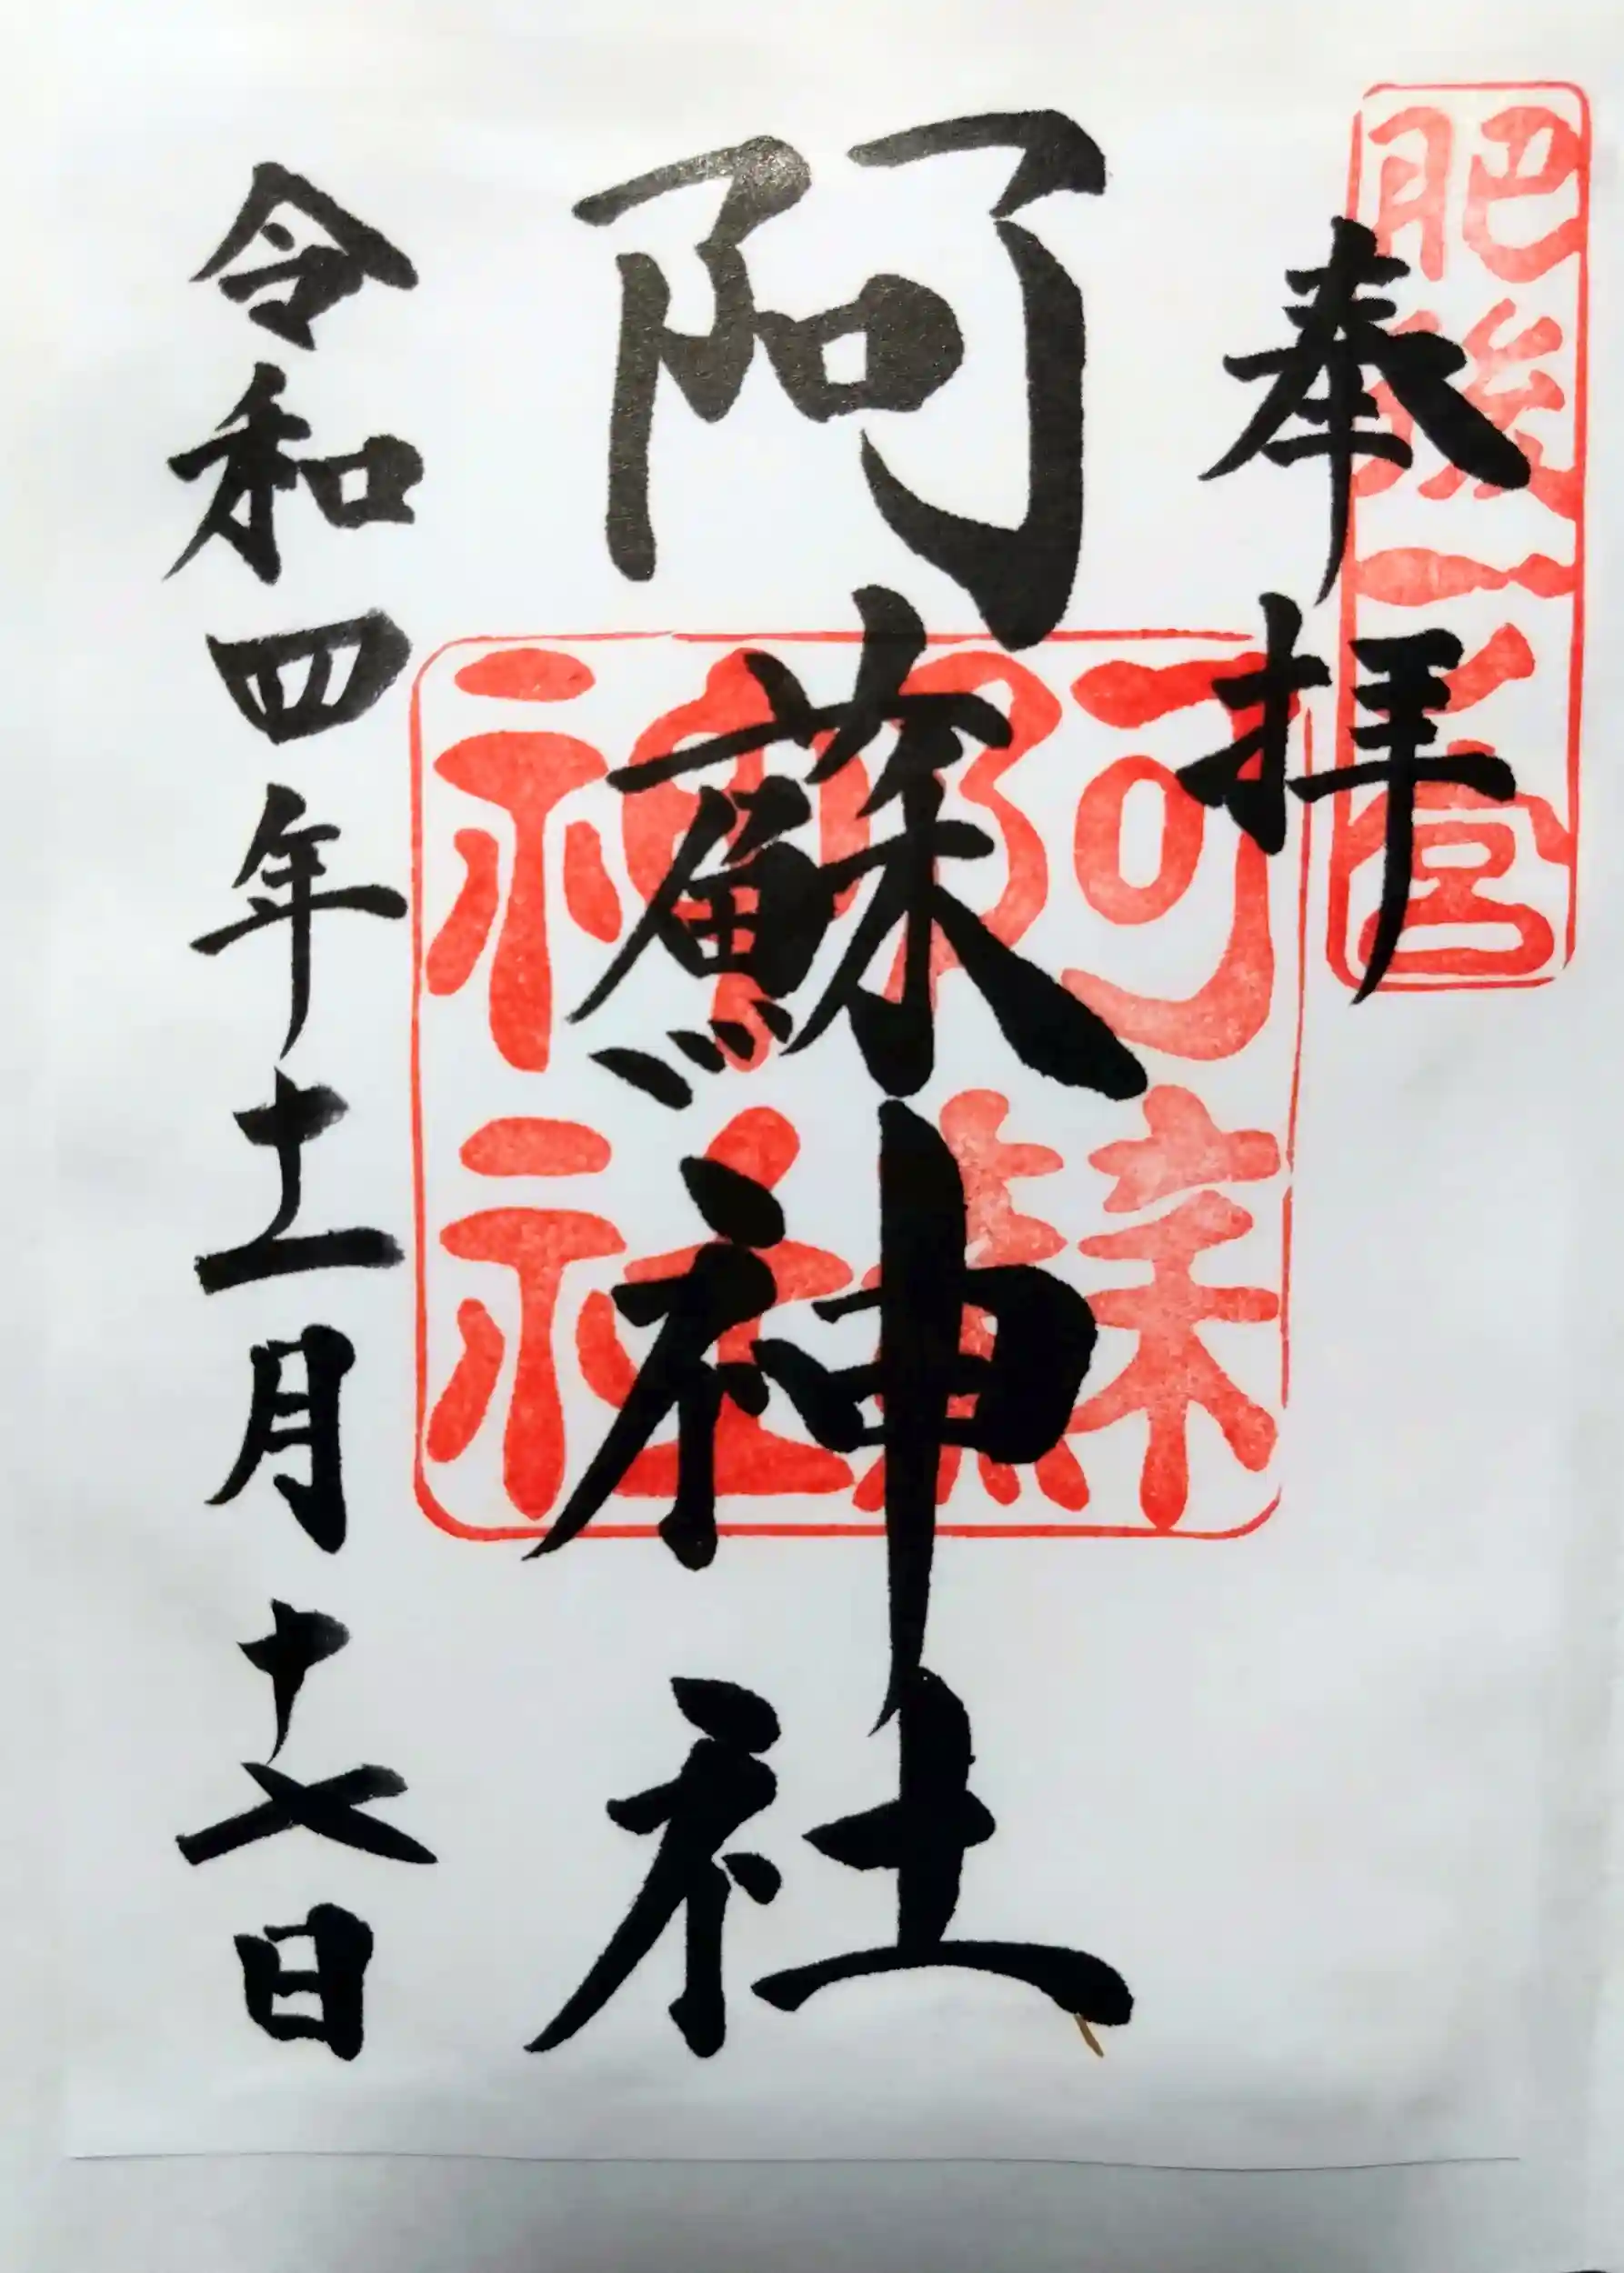 肥後一之宮
奉拝
阿蘇神社
阿蘇
神社
令和四年十一月十七日